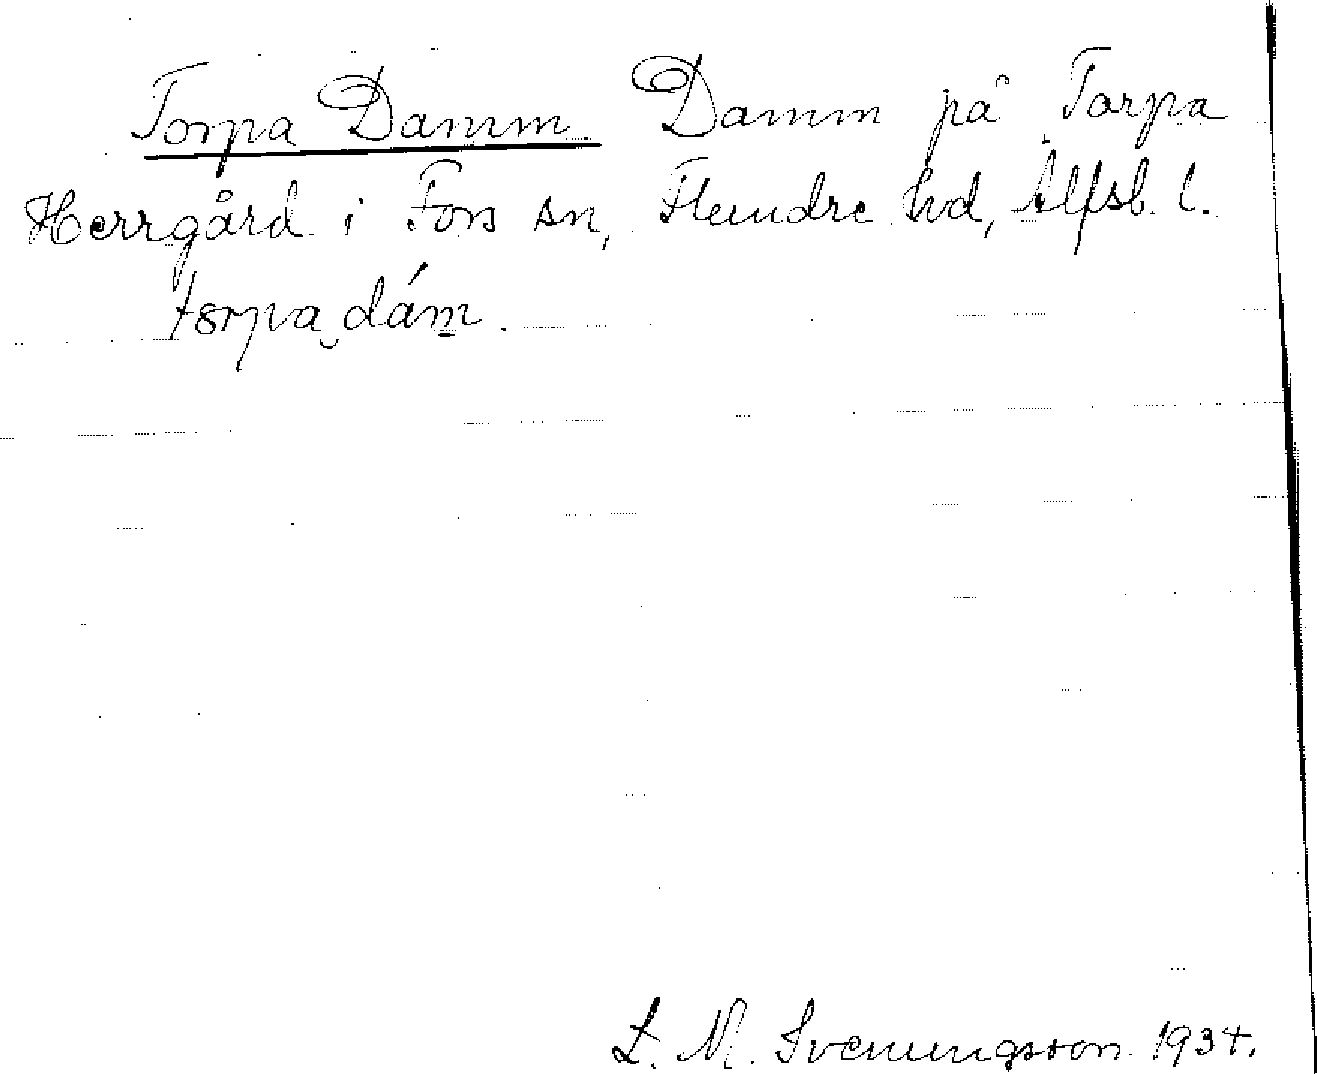 Torpa Damm Damm på Torpa
Herrgård i Fors sn, Flundre hd, Älfsb. l.
tɷrpa dám.
L. M. Svenungsson 1934.